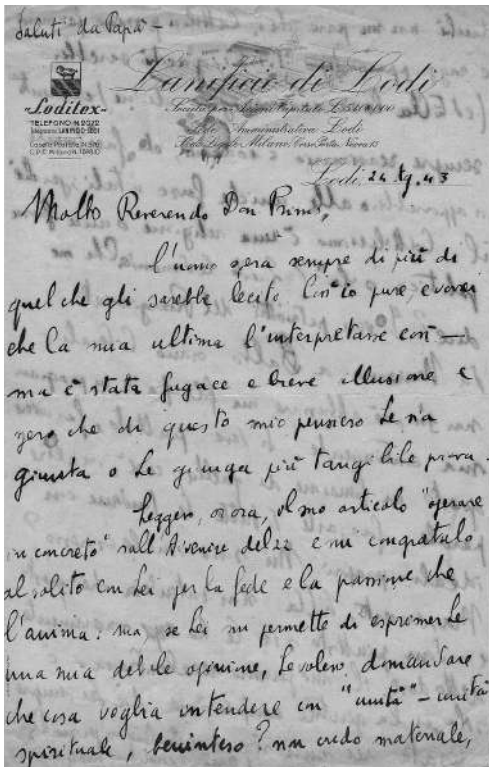 Saluti da Papà -
Lanificio di Lodi
"Loditex"
Società per Azioni Capitale L.
TELEFONO N. 2022
Telegrammi: LANIFICIO LODI
Sede Amministrativa Lodi
Casella Postale N.
C.P.E. Milano N.
Sede Legale Milano, Corso Porta Nuova 15
Lodi, 24.
Molto Reverendo Don Primo,
l'uomo spera sempre di più di
quel che gli sarebbe lecito. Così io pure, e vorrei
che la mia ultima l'interpretasse così —
ma è stata fugace e breve illusione e
spero che di questo mio pensiero Le sia
giunta o Le giunga più tangibile prova.
Leggevo, or ora, il suo articolo "operare
in concreto" sull'Avvenire del 22 e mi congratulo
al solito con Lei per la fede e la passione che
l'anima: ma se Lei mi permette di esprimerLe
una mia debole opinione, Le volevo domandare
che cosa voglia intendere con "unità" - unità
spirituale, beninteso? non credo materiale,